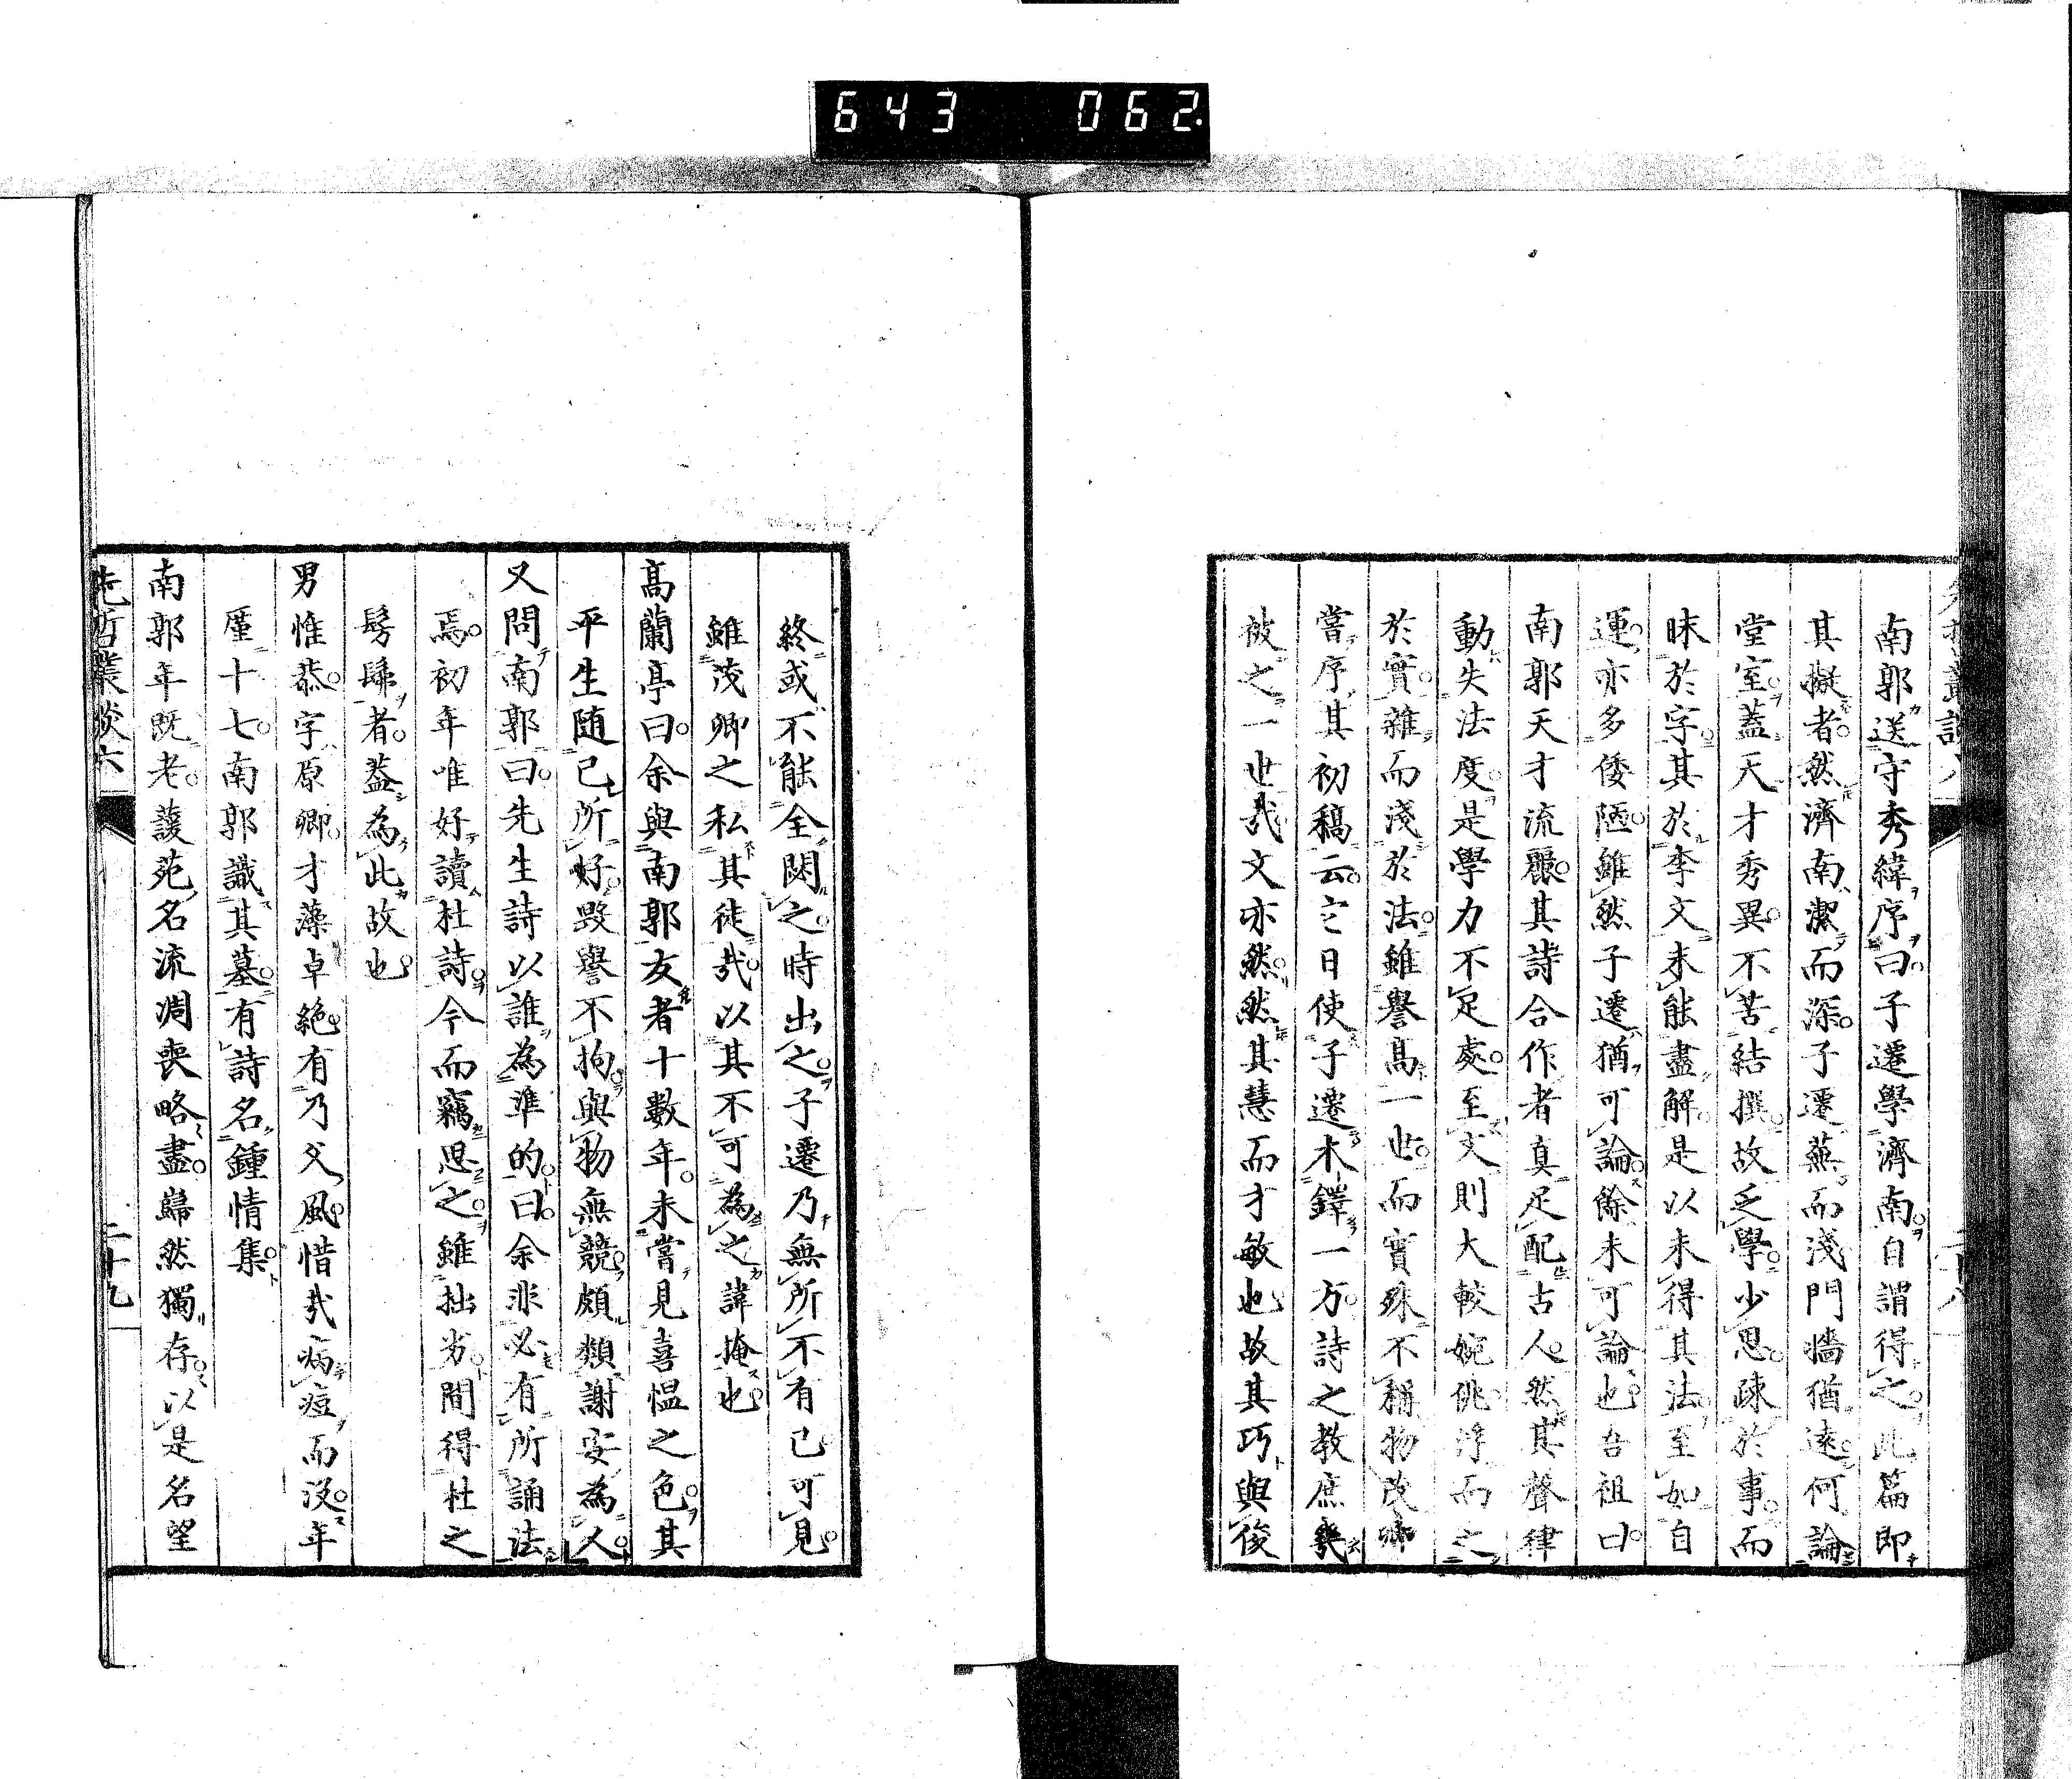 643 062
南郭送守秀緯序曰子遷學濟南自謂得之此篇即
其擬者然濟南潔而深子遷蕪而淺門牆猶遠何論
堂室蓋天才秀異不苦結撰故乏學少思疎於事而
昧於字其於李文未能盡解是以未得其法至如自
運亦多倭陋雖然子遷猶可論餘未可論也吾祖曰
南郭天才流麗其詩合作者真足配古人然其聲律
動失法度是學力不足處至文則大較婉佻浮而之
於實雜而淺於法雖譽高一世而實殊不稱物茂卿
嘗序其初稿云它日使子遷木鐸一方詩之教庶幾
被之一世哉文亦然然其慧而才敏也故其巧與後
終或不能全閟之時出之子遷乃無所不有已可見
雖茂卿之私其徒哉以其不可為之諱掩也
高蘭亭曰余與南郭友者十數年未嘗見喜慍之色其
平生隨己所好毀譽不拘與物無競頗類謝安為人
又問南郭曰先生詩以誰為準的曰余非必有所誦法
焉初年唯好讀杜詩今而竊思之雖拙劣間得杜之
髣髴者蓋為此故也
男惟恭字原卿才藻卓絕有乃父風惜哉病痘而沒年
廑十七南郭識其墓有詩名鍾情集
南郭年既老蘐苑名流凋喪略盡巋然獨存以是名望
先哲叢談六 二十九